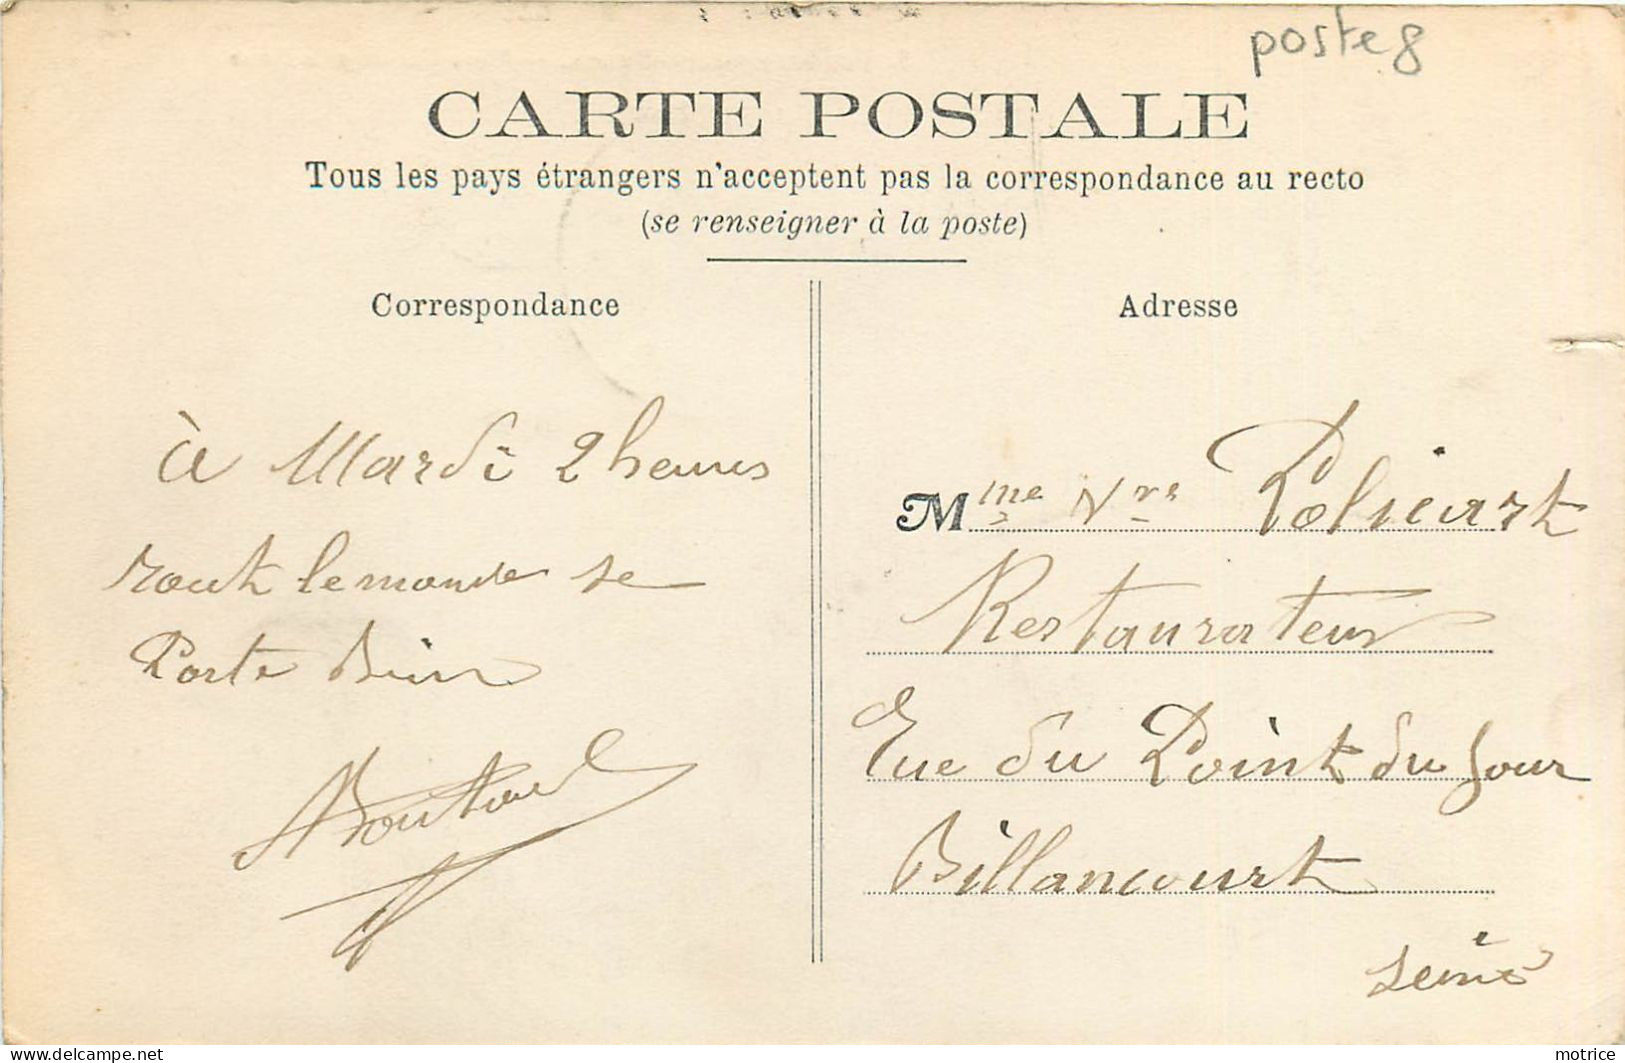 poste 8
CARTE POSTALE
Tous les pays étrangers n'acceptent pas la correspondance au recto
(se renseigner à la poste)
Correspondance
Adresse
à Mardi 2 heures
tout le monde se
Porte Bien
Mme Vve Policart
Restaurateur
Rue du Point du Jour
Billancourt
Seine
motrice